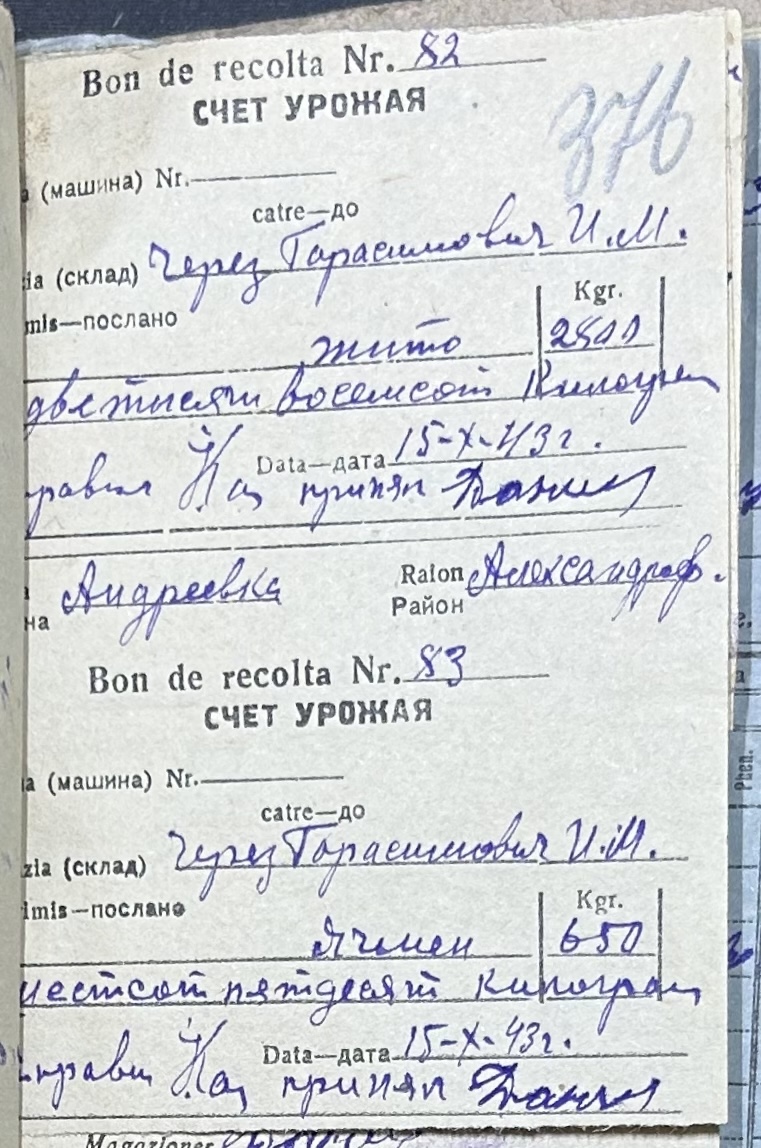 Bon de recolta Nr. 82
СЧЕТ УРОЖАЯ
376
а (машина) Nr.
catre—до
zia (склад) Через Гарасимович И.М.
mis—послано
Kgr.
жито 2800
две тысячи восемсот Килограм
Data—дата 15-X-43 г.
правил принял
на Андреевка Raion Александроф.
Район
Bon de recolta Nr. 83
СЧЕТ УРОЖАЯ
a (машина) Nr.
catre—до
zia (склад) Через Гарасимович И.М.
imis—послано
Kgr.
Ячмен 650
шестсот пятдесят килограм
Data—дата 15-X-43 г.
правил принял
Magazioner
Phen.